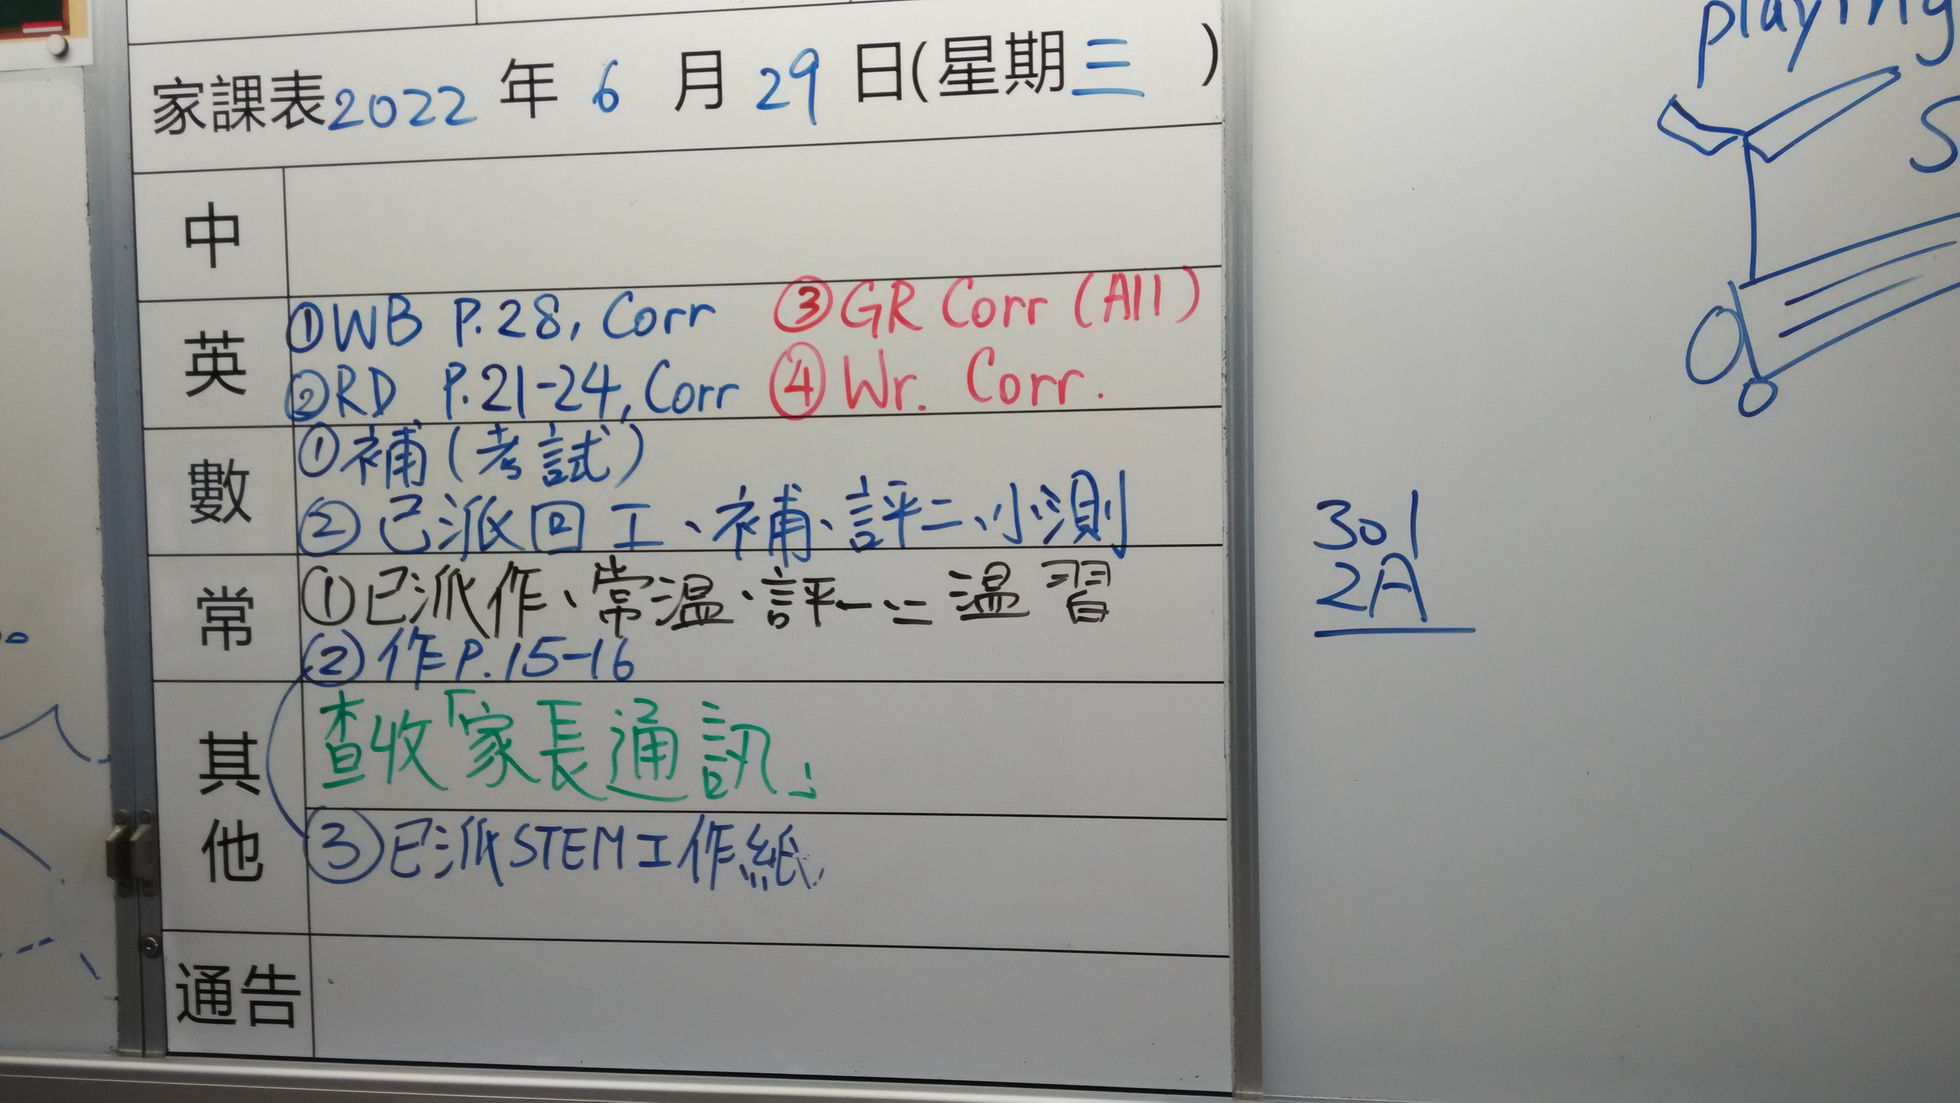 家課表2022年6月29日(星期三)
中
英
①WB P.28, Corr ③GR Corr (All)
②RD P.21-24, Corr ④Wr. Corr.
數
①補(考試)
②已派回工、補、評二、小測
常
①已派作、常溫、評一、二溫習
②作P.15-16
其他
查收「家長通訊」
③已派STEM工作紙
通告
playing
S
301
2A